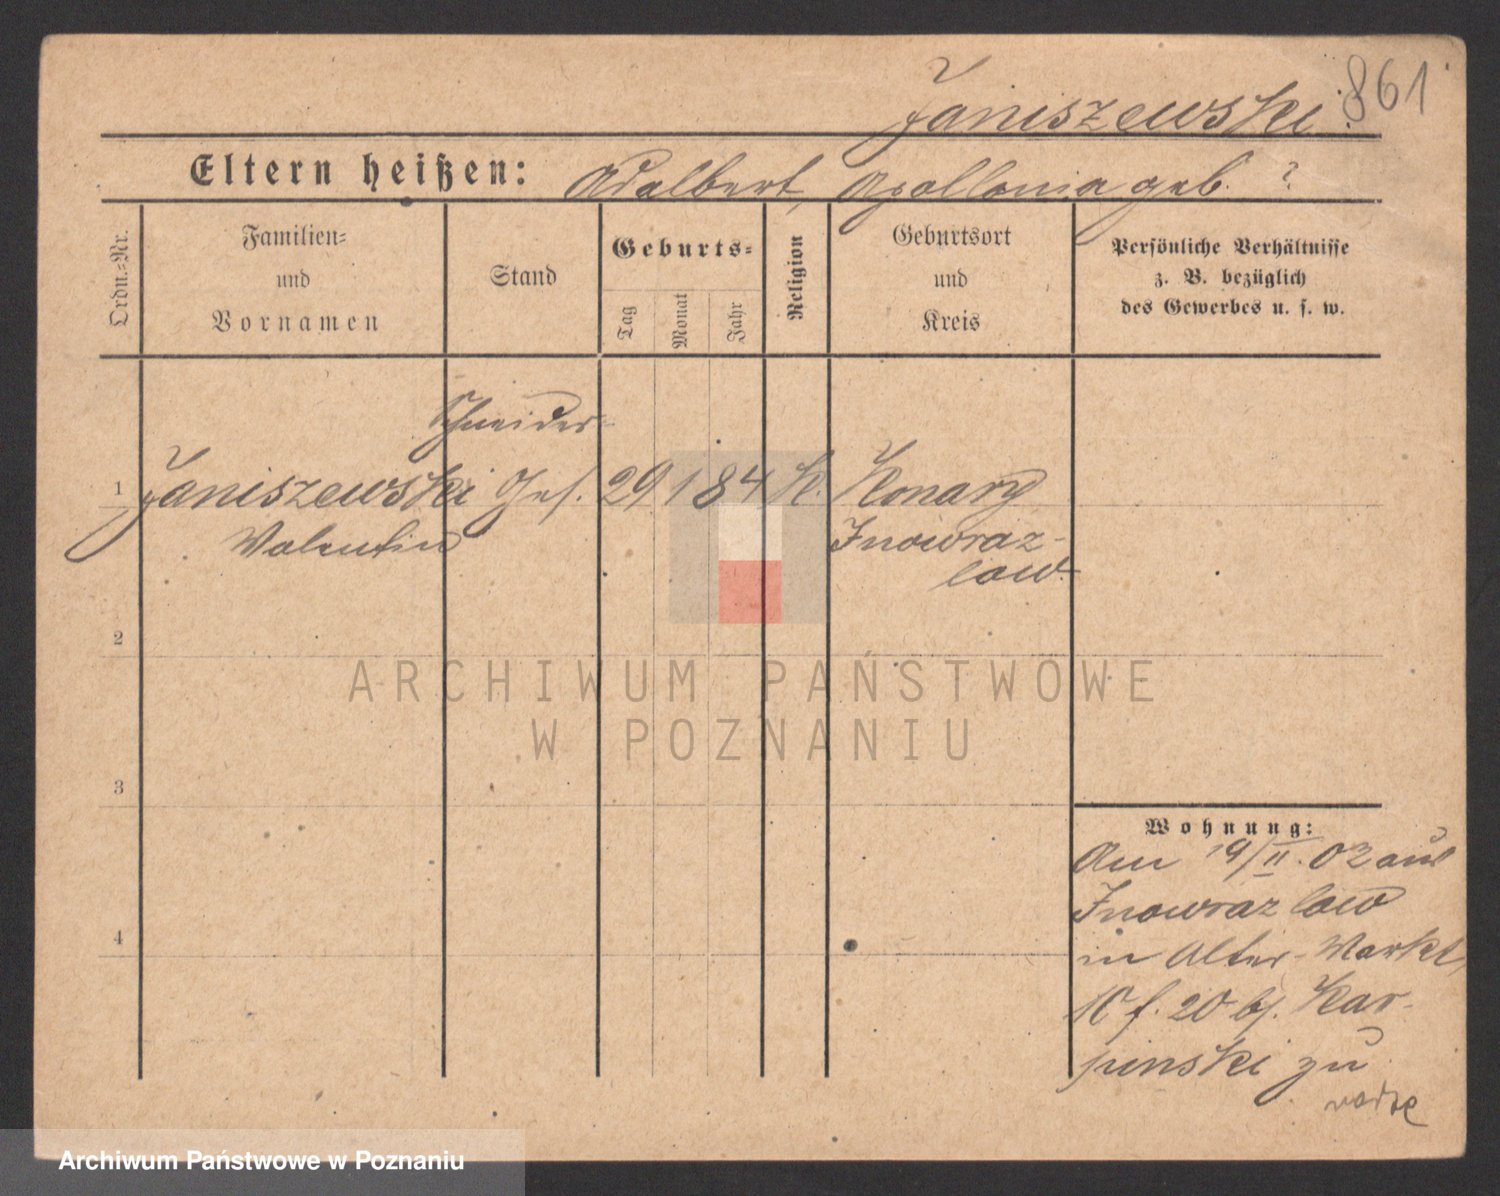 861
Janiszewski
Eltern heißen: Adalbert, Apollonia geb. ?
Ordn.-Nr.
Familien- und Vornamen
Stand
Geburts-
Tag
Monat
Jahr
Religion
Geburtsort und Kreis
Persönliche Verhältnisse
z. B. bezüglich
des Gewerbes u. s. w.
Schneider-
1 Janiszewski Ges. 29 1 84 K. Konary
Valentin
Inowraz-
law.
2
3
4
Wohnung:
Am 19/II. 02 aus
Inowrazlaw
in Alter-Markt
20 b/. Kar-
pinski zu
ARCHIWUM PAŃSTWOWE
W POZNANIU
Archiwum Państwowe w Poznaniu